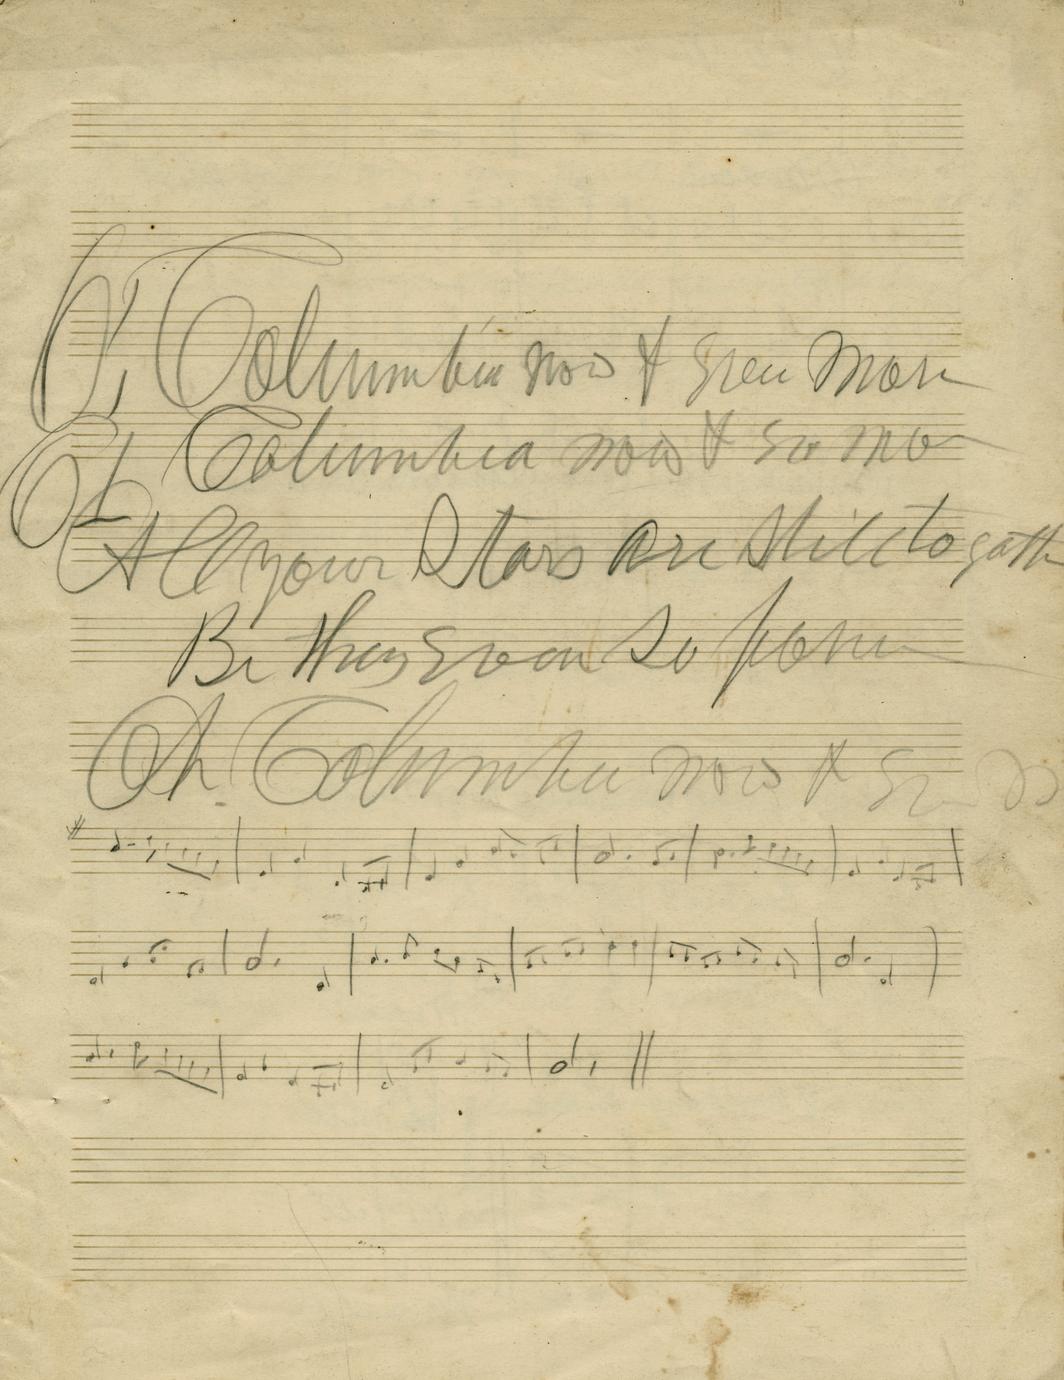 Oh, Columbia now & Ever More
Oh Columbia now & Ever Mo
All your Stars Are Still togath
Be they Ever So fare
Oh Columbia now & Ev